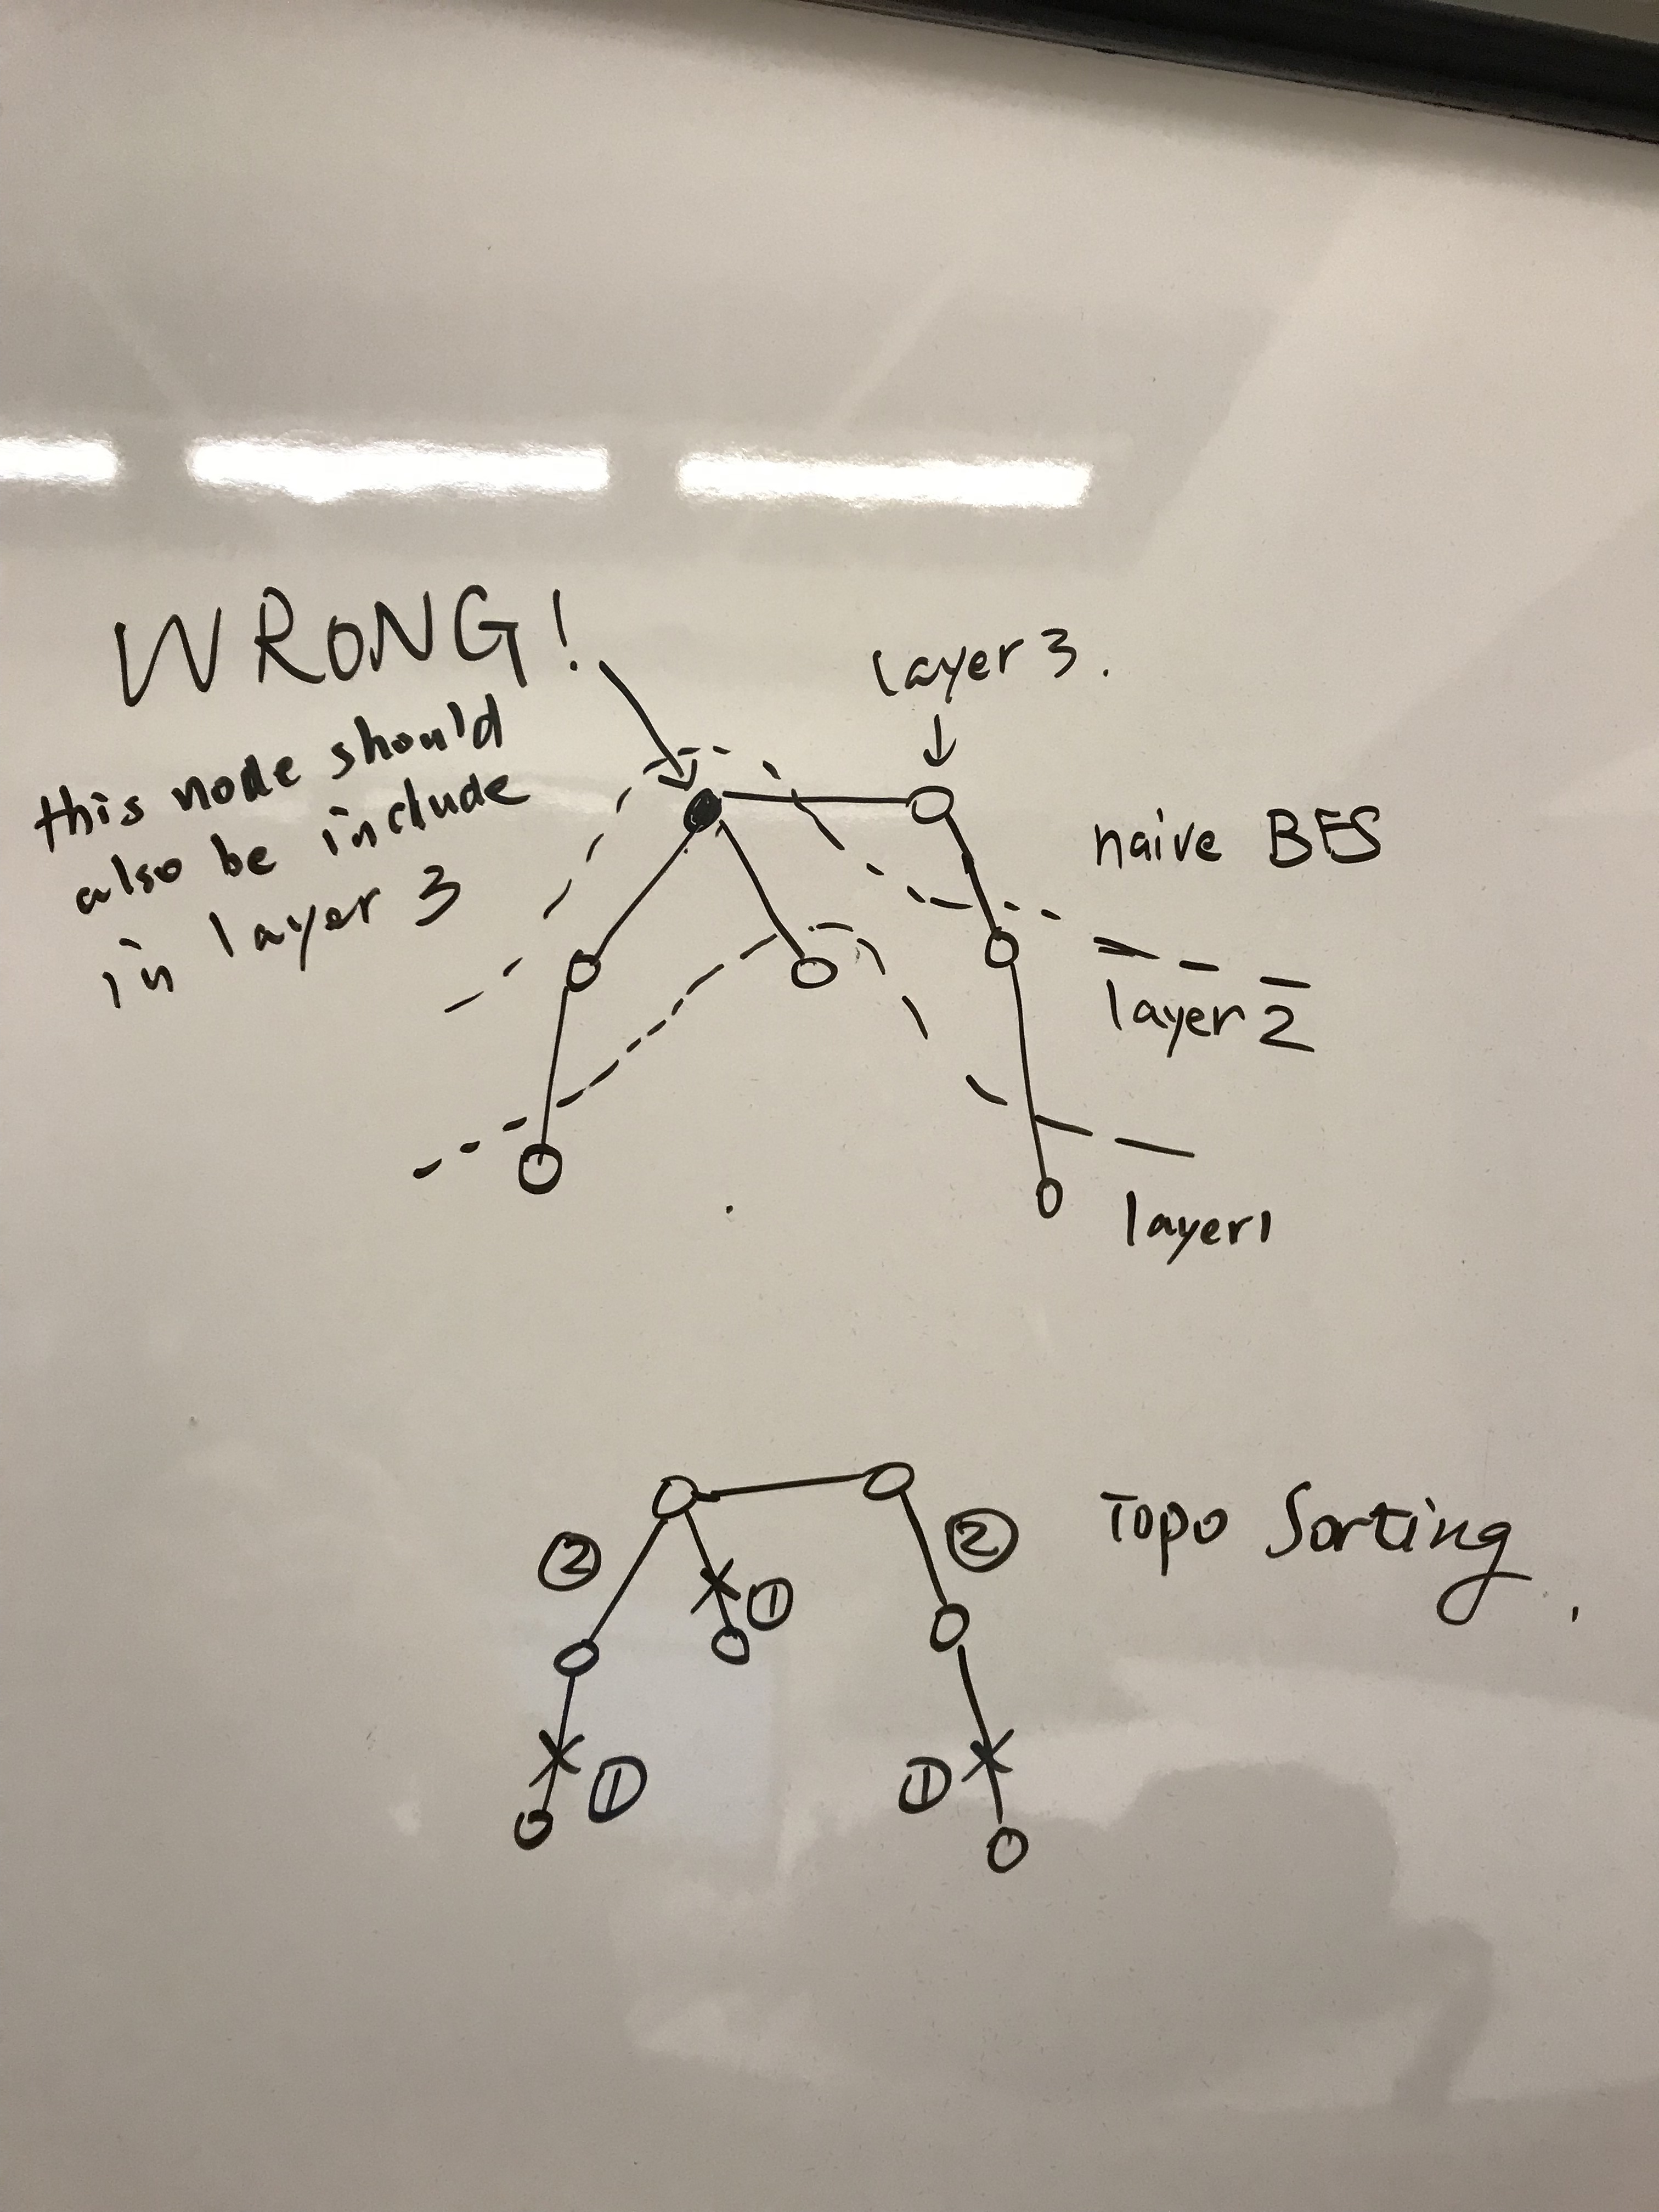 WRONG!
this node should
also be include
in layer 3
layer 3.
naive BFS
layer 2
layer1
②
①
②
Topo Sorting.
①
①